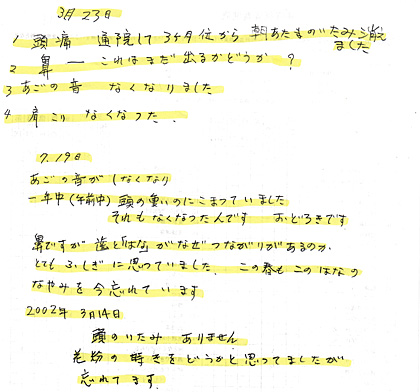 3月23日
1 頭痛 通院して3ヶ月位から 朝あたものいたみ消え
ました
2 鼻 ー これはまだ出るかどうか ?
3 あごの音 なくなりました
4 肩こり なくなった.
7.19日
あごの音がしなくなり
一年中(午前中)頭の重いのにこまっていました
それもなくなったんです おどろきです
鼻ですが 歯と「はな」がなぜつながりがあるのか
とてもふしぎに思っていました. この春もこのはなの
なやみを今忘れています
2002年 3月14日
頭のいたみ ありません
花粉の時きをどうかと思ってましたが
忘れてます.